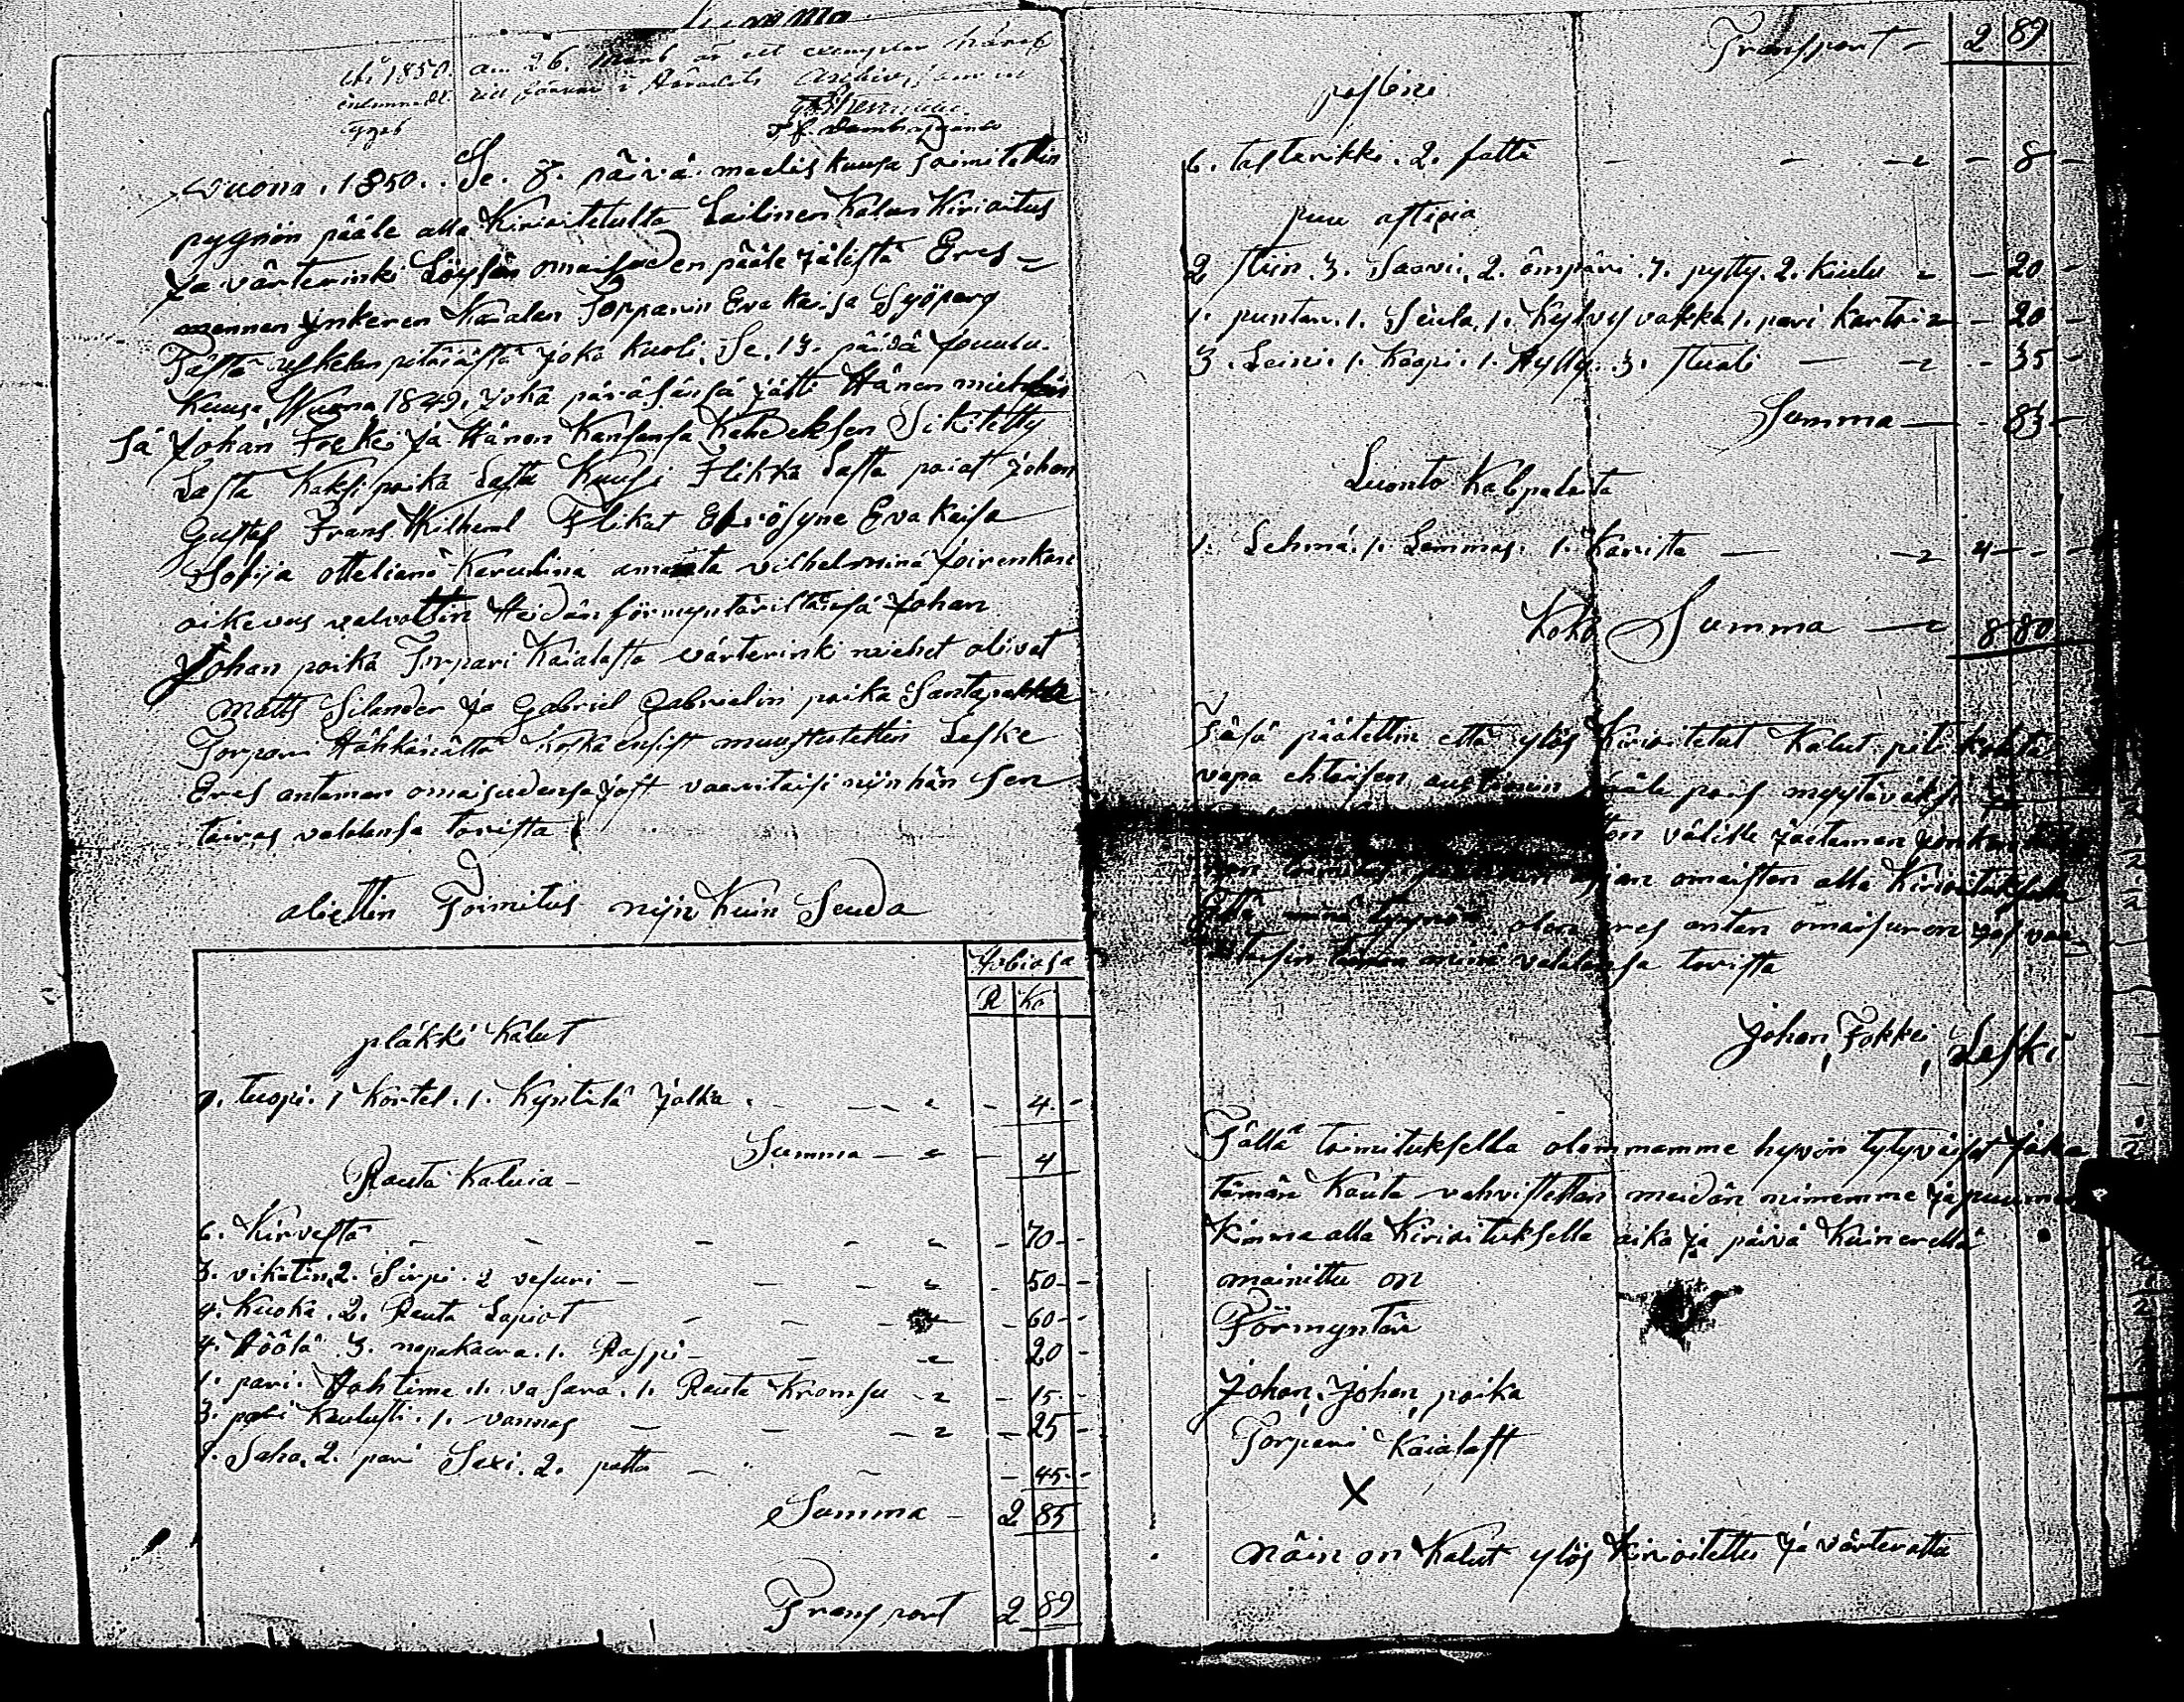 År 1850. den 26. Mars är ett exemplar häraf
inlemnadt till förvar i Häradets Archiv, som
Wuona. 1850.. Se. 8. päivä maalis kuusa toimitettin
pygnön pääle alla Kirioitetulta Lailinen Kalun Kirioitus
Ja värterinki Löysän omaisuden pääle Jälistä Eres-
mennen ynkeren Kaialan Torparin Eva kaisa Syöperg
Tästä uskelan pitäiästä Joka kuoli. Se. 13. päivä Jouulu.
Kuusa Wuona 1849. Joka peräsänsä Jätti Hänen miehen
sä Johan Fokki Ja Hänen Kansansa Kahdeksen Sikitetty
Lasta Kaksi poika Lasta Kuusi Flikka Lasta poiat Johan
Gustaf Frans Wilheml Flikat Efrösyne Eva Kaisa
Sofija otteliana Karulina amanta vilhelmina Joirenkan
oikeus valvottin Heidän förmyntäristänsä Johan
Johan poika Torpari Kaialasta värterinki miehet olivat
Matts Selander Ja Gabriel Gabrielin poika Santapakka
Torpari Hähkänältä Koska ensist muustutettin Leske
Eres antaman omaisudensa Jost vaaritaisi nijn hän sen
taivas valalansa tovista
aliettin Toimitus nijn Kuin Seuda
Arbiosa
R Ko
pläkki Kalut
1. tuopi. 1 Kortel. 1. Kyntilä Jalka. - 4 -
Summa - 4
Rauta Kaluia -
6. Kirvestä - 70 -
3. vikatin. 2. Sirpi. 2 vesuri - 50 -
4. Kuoka. 2. Rauta Lapiot - 60 -
4. Höölä. 3. nopakaira. 1. Raspi - 20 -
1. pari. Hahtima. 1. vasara. 1. Rauta Kromsu - 15 -
3. pari Kaulusti. 1. vannas - 25 -
1. Saha. 2. pari Saxi. 2. patta - 45 -
Summa - 2 85
Transport 2 89
Transport - 2 89
poslini
6. tasterikki. 2. fattä - 8 -
puu astioia
2 tiin. 3. Saavi. 2. ömpäri. 7. pytty. 2. Kiulu - 20 -
1. puntari. 1. Seula. 1. Kylvys vakka 1. pari Kartoia - 20 -
3. Leini. 1. Kaapi. 1. Hylly. 3. Tuoli - 35 -
Summa - 83 -
Luonto Kalpaleita
1. Lehmä. 1. Lammas. 1. Karitta - 4 - -
Koko Summa - 8 80
Täsä päätettin että ylös Kirioitetut Kalut piti kohta
vapa ehtoisen auctionin pääle pois myytäväksi
välille Jaetaman Jonka
omaisten alla Kirioituksella
olen eres anten omaisuren Jos vaa
minä valalansa tovista
Johan, Fokki, Leski
Tällä toimituksella olemmamme hyvin tytyväiset Joka
tämän Kauta vahvistettan meidän nimemme Ja puumer
Kimme alla Kirioituksella aika Ja päivä Kuin erellä
mainittu on
Förmyntär
Johan, Johan, poika
Torpari Kaialast
X
näin on Kalut ylös Kirioitettu Ja värteratta